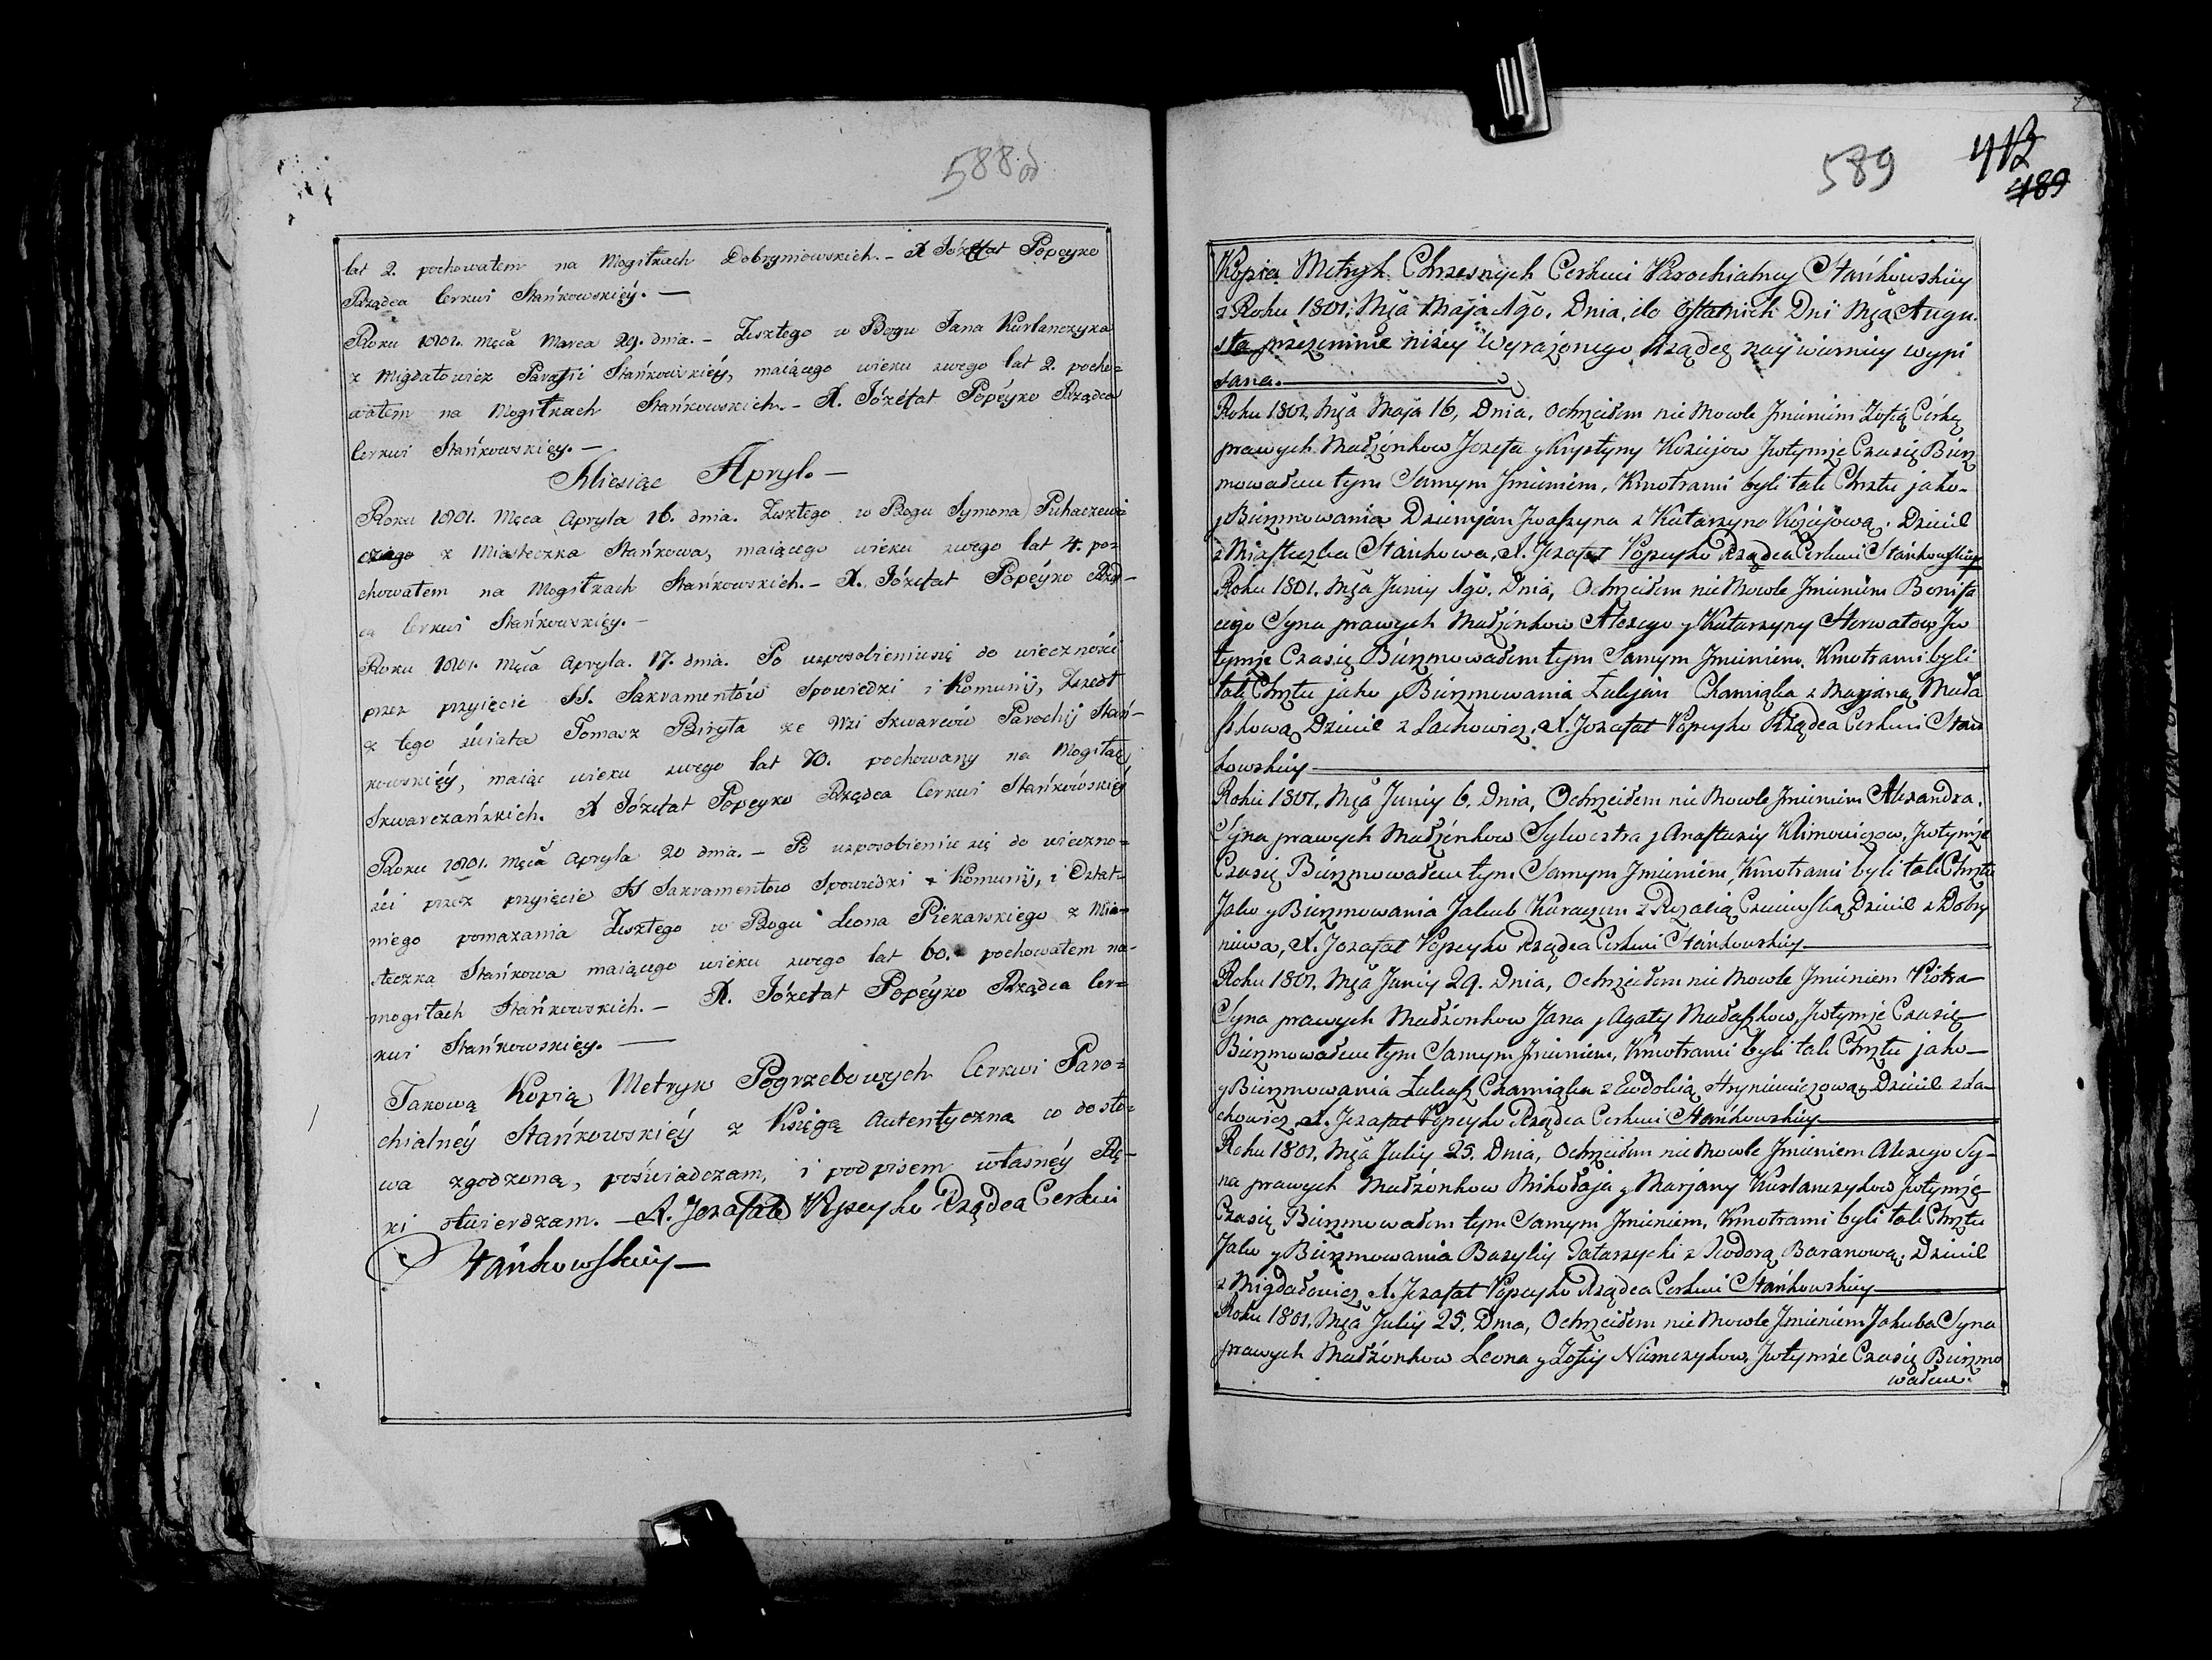 588 od
lat 2. pochowałem na Mogiłkach Dobryniowskich. – X Józefat Popeyko
Rządca Cerkwi Stańkowskiéy. —
Roku 1801. Męca Marca 29. dnia. – Zeszłego w Bogu Jana Kurlanczyka
z Migdałowicz Parafii Stańkowskiéy, maiącego wieku swego lat 2. pocho=
wałem na Mogiłkach Stańkowskich. – X. Józefat Popéyko Rządca
Cerkwi Stańkowskiéy. —
Miesiąc Apryl. —
Roku 1801. Męca Apryla 16. dnia. Zeszłego w Bogu Symona Puhaczewi
czago z Miasteczka Stańkowa, maiącego wieku swego lat 4. po=
chowałem na Mogiłkach Stańkowskich. – X. Józefat Popéyko Rząd–
ca Cerkwi Stańkowskiéy. –
Roku 1801. Męca Apryla. 17. dnia. Po usposobieniu się do wieczności
przez przyięcie SS. Sakramentów Spowiedzi i Komunij, Zszedł
z tego świata Tomasz Biryła ze Wsi Skwarców Parochij Stań–
kowskiéy, maiąc wieku swego lat 70. pochowany na Mogiłac
Skwarczańskich. X Józefat Popeyko Rządca Cerkwi Stańkowskiéy
Roku 1801. Męca Apryla 20 dnia. – Po usposobieniu się do wieczno=
ści przez przyięcie SS Sakramentow Spowiedzi i Komunij, i Ostat=
niego pomazania Zeszłego w Bogu Leona Piekarskiego z Mia=
steczka Stańkowa maiącego wieku swego lat 60. pochowałem na–
mogiłach Stańkowskich. – X. Józefat Popéyko Rządca Cer=
kwi Stańkowskiey. —
Takową Kopią Metryk Pogrzebowych Cerkwi Paro=
chialnéy Stańkowskiéy z Księgą Autentyczną co do sło=
wa zgodzoną, poświadczam, i podpisem własnéy Rę–
ki stwierdzam. – X. Jozafat Popeyko Rządca Cerkwi
Stańkowskiey —
589
412
489
Kopia Metryk Chrzesnych Cerkwi Parochialney Stańkowskiey
z Roku 1801. Mca Maja 1go. Dnia, do Ostatnich Dni Mca Augu.
sta przezemnie niżey Wyrażonego Rządcę nay wierniey wypi
sana.
Roku 1801, Mca Maja 16, Dnia, Ochrzciłem nie Mowle Jmieniem Zofią Córkę
prawych Małżonkow Jozefa y Krystyny Koziejow Jwtymże Czasie Bierz
mowałem tym Samym Jmieniem, Kmotrami byli tak Chrztu jako–
y Bierzmowania Dziemjan Jwaszyna z Katarzyną Koziejową. Dziecie
z Miasteczka Stańkowa, X. Jozafat Popeyko Rządca Cerkwi Stańkowskiey
Roku 1801, Mca Juniy 1go. Dnia, Ochrzciłem nie Mowle Jmieniem Bonifa
cego Syna prawych Małżonkow Alexego y Katarzyny Horwatow Jw
tymże Czasie Bierzmowałem tym Samym Jmieniem, Kmotrami byli
tak Chrztu jako y Bierzmowania Łukjan Chamiąka z Marjaną Mała
szkową Dziecie z Lachowicz, X. Jozafat Popeyko Rządca Cerkwi Stań
kowskiey
Roku 1801, Mca Juniy 6. Dnia, Ochrzciłem nie Mowle Jmieniem Alexandra.
Syna prawych Małżonkow Sylwestra y Anastazij Klimowiczow, Jwtymże
Czasie Bierzmowałem tym Samym Jmieniem, Kmotrami byli tak Chrztu
Jako y Bierzmowania Jakub Karaczun z Rozalią Dziecie z Dobry
niewa, X. Jozafat Popeyko Rządca Cerkwi Stańkowskiey
Roku 1801, Mca Juniy 29. Dnia, Ochrzciłem nie Mowle Jmieniem Piotra
Syna prawych Małżonkow Jana y Agaty Małaszkow, Jwtymże Czasie
Bierzmowałem tym Samym Jmieniem, Kmotrami byli tak Chrztu jako—
y Bierzmowania Łukasz Chamiąka z Ewdokią Hryniewiczową, Dziecie z La–
chowicz, X. Jozafat Popeyko Rządca Cerkwi Stańkowskiey
Roku 1801, Mca Juliy 25. Dnia, Ochrzciłem nie Mowle Jmieniem Alexego Sy–
na prawych Małżonkow Mikołaja y Marjany Kurlanczykow Jwtymże
Czasie Bierzmowałem tym Samym Jmieniem, Kmotrami byli tak Chrztu
Jako y Bierzmowania Bazyliy Tatarzycki z Teodorą Baranową. Dziecie
z Migdałowicz X. Jozafat Popeyko Rządca Cerkwi Stańkowskiey
Roku 1801, Mca Juliy 25. Dnia, Ochrzciłem nie Mowle Jmieniem Jakuba Syna
prawych Małżonkow Leona y Zofiy Niemczykow, Jwtymże Czasie Bierzmo
wałem.